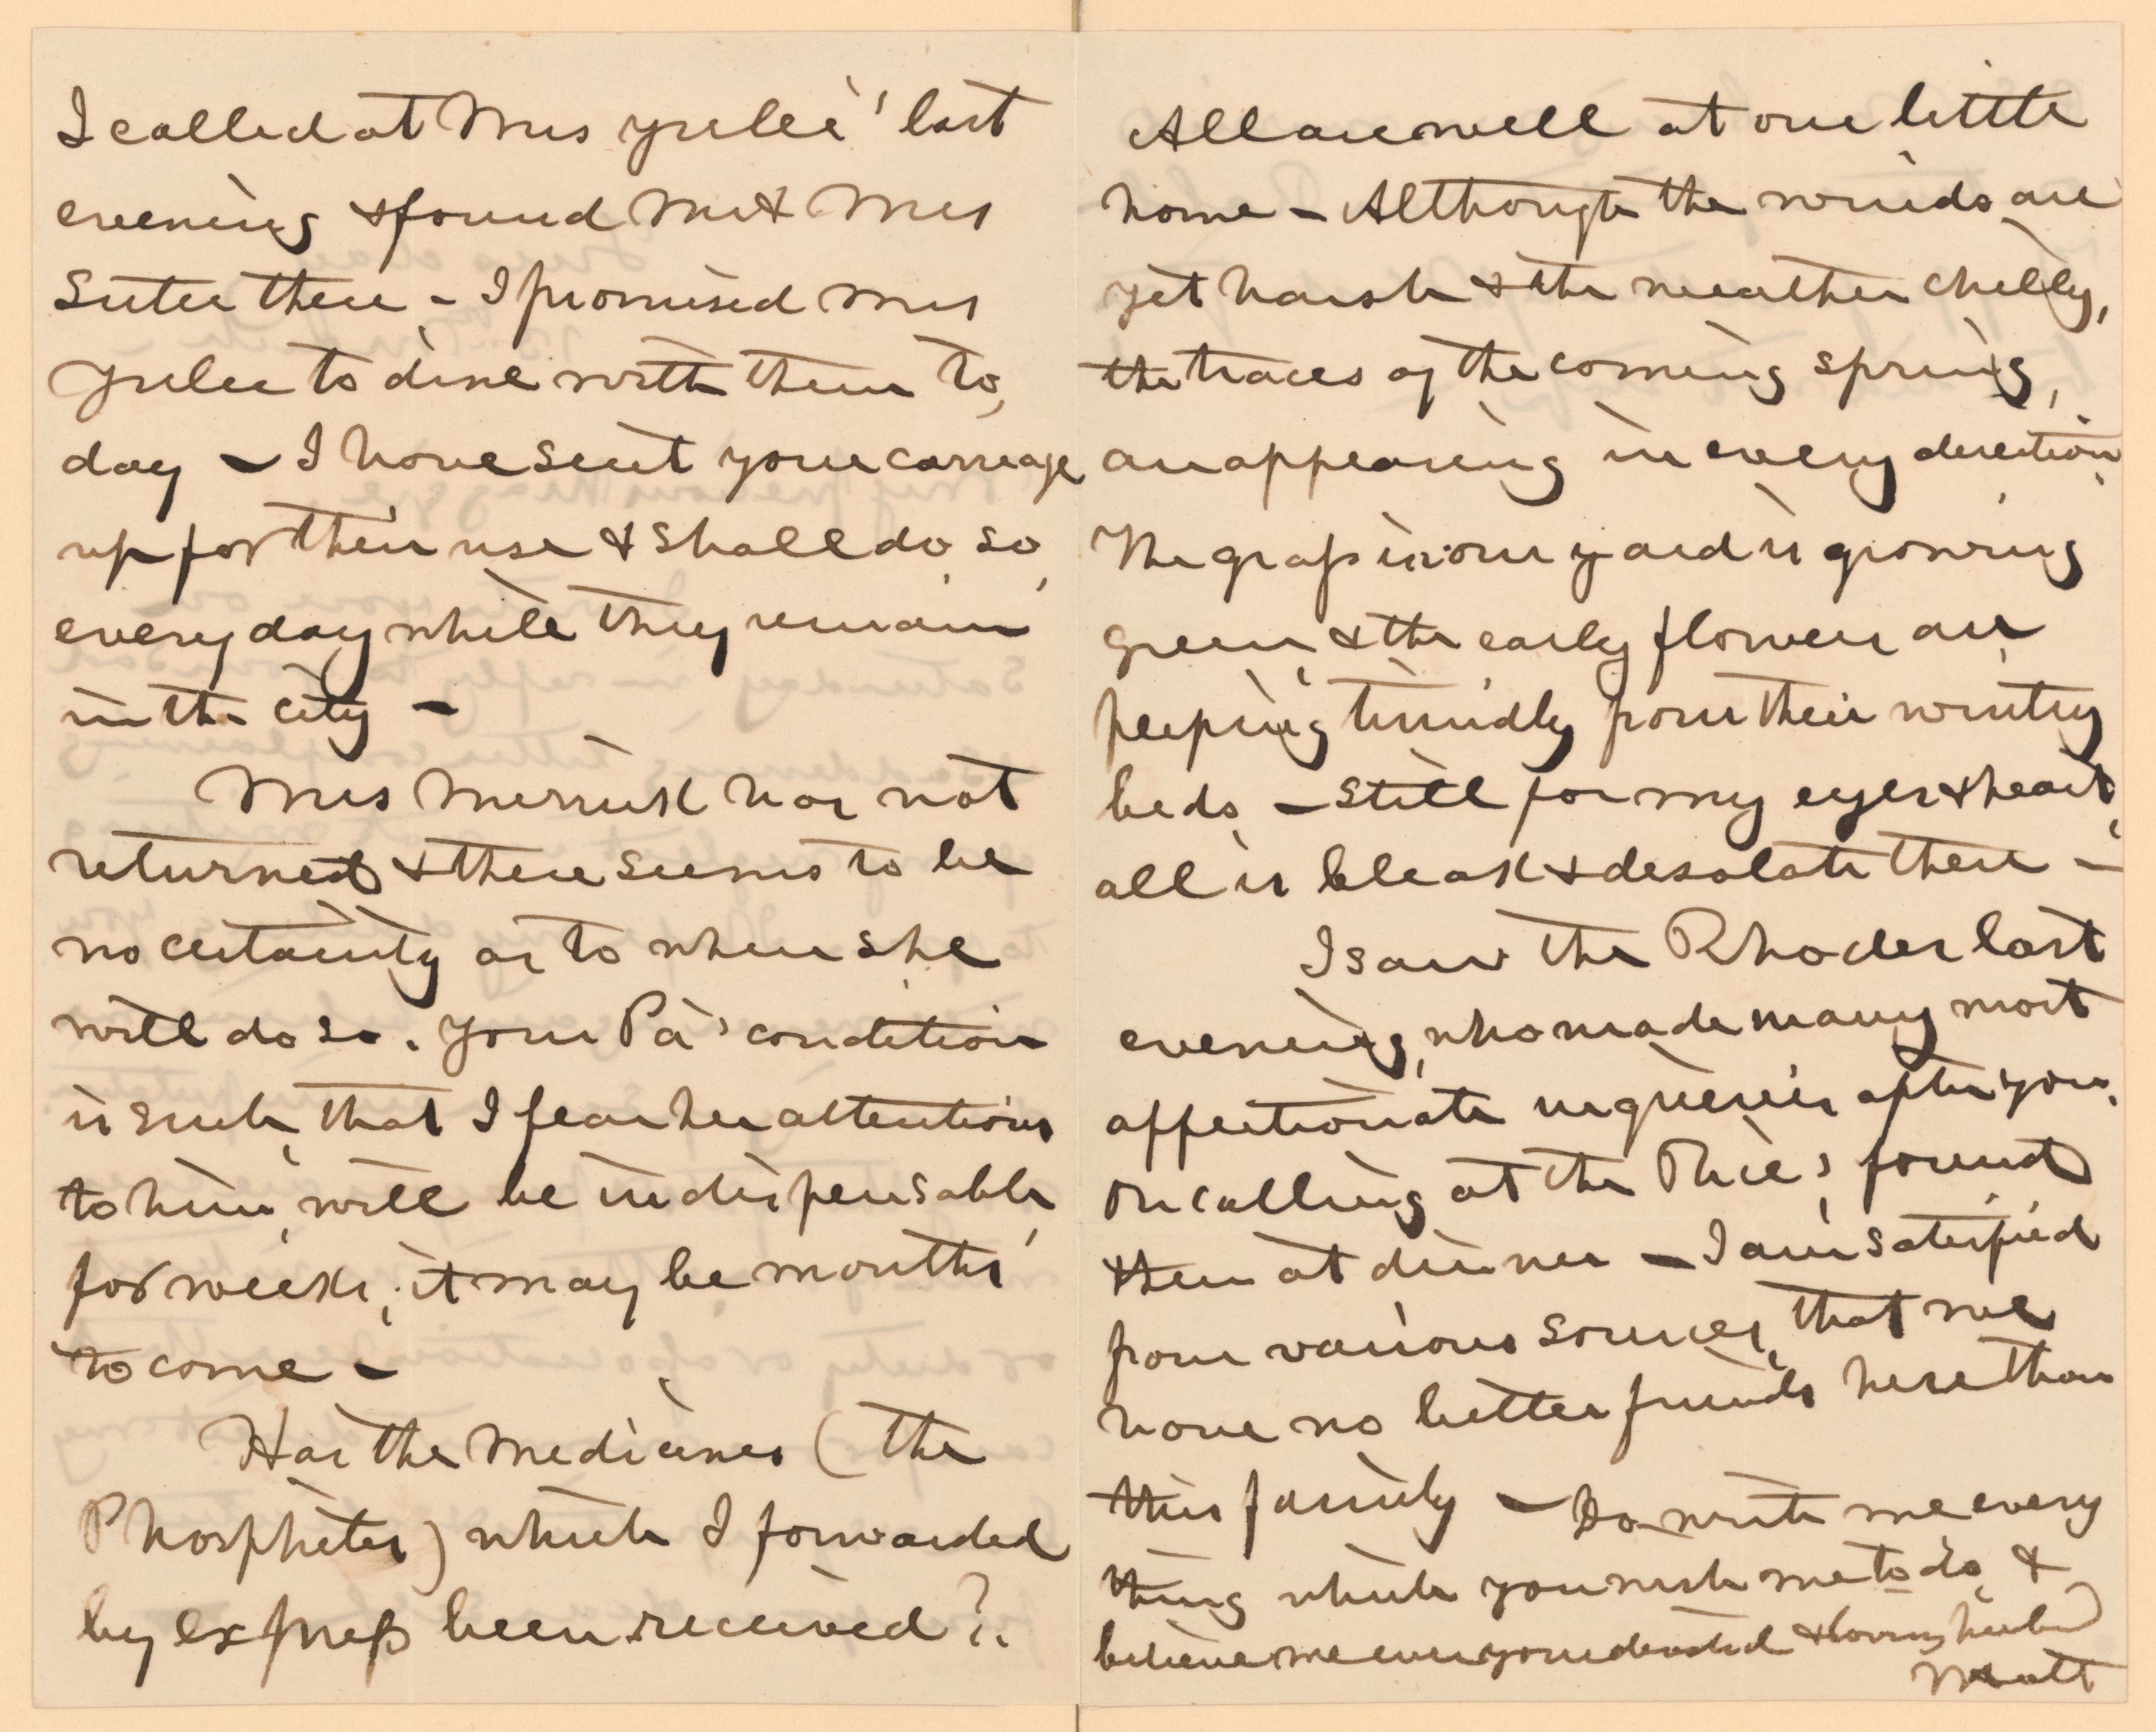 I called at Mrs Yulee' last
evening & found Mr & Mrs
Suter there - I promised Mrs
Yulee to dine with them to,
day - I have sent your carriage
up for their use & shall do so,
every day while they remain
in the city -
Mrs Merrick has not
returned & there seems to be
no certainty as to when she
will do so. Your Pa' condition
is such, that I fear her attentions
to him, will be indispensable,
for weeks, it may be months'
to come -
Has the Medicines (the
Phosphites) which I forwarded
by express been received?
All are well at our little
home - Although the winds are
yet harsh & the weather chilly,
the traces of the coming spring,
are appearing in every direction,
The grass in our yard is growing
green, & the early flowers are
peeping timidly from their wintry
beds, - Still for my eyes & heart,
all is bleak & desolate there -
I saw the Rhodes last
evening, who made many most
affectionate inquiries after you.
On calling at the Rice's found
them at dinner - I am satisfied
from various sources, that we
have no better friends here than
this family - Do write me every
thing which you wish me to do, &
believe me ever your devoted & loving
Matt